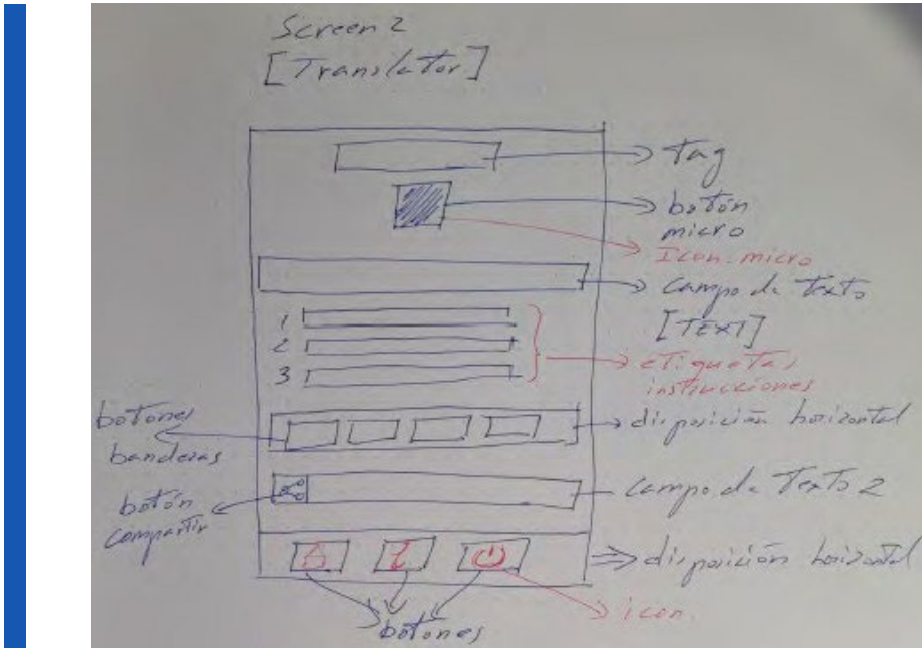 Screen 2
[Translator]
tag
botón
micro
Icon. micro
campo de texto
[TEXT]
1
2
3
etiquetas
instrucciones
botones
banderas
disposición horizontal
botón
compartir
campo de Texto 2
disposición horizontal
botones
icon.